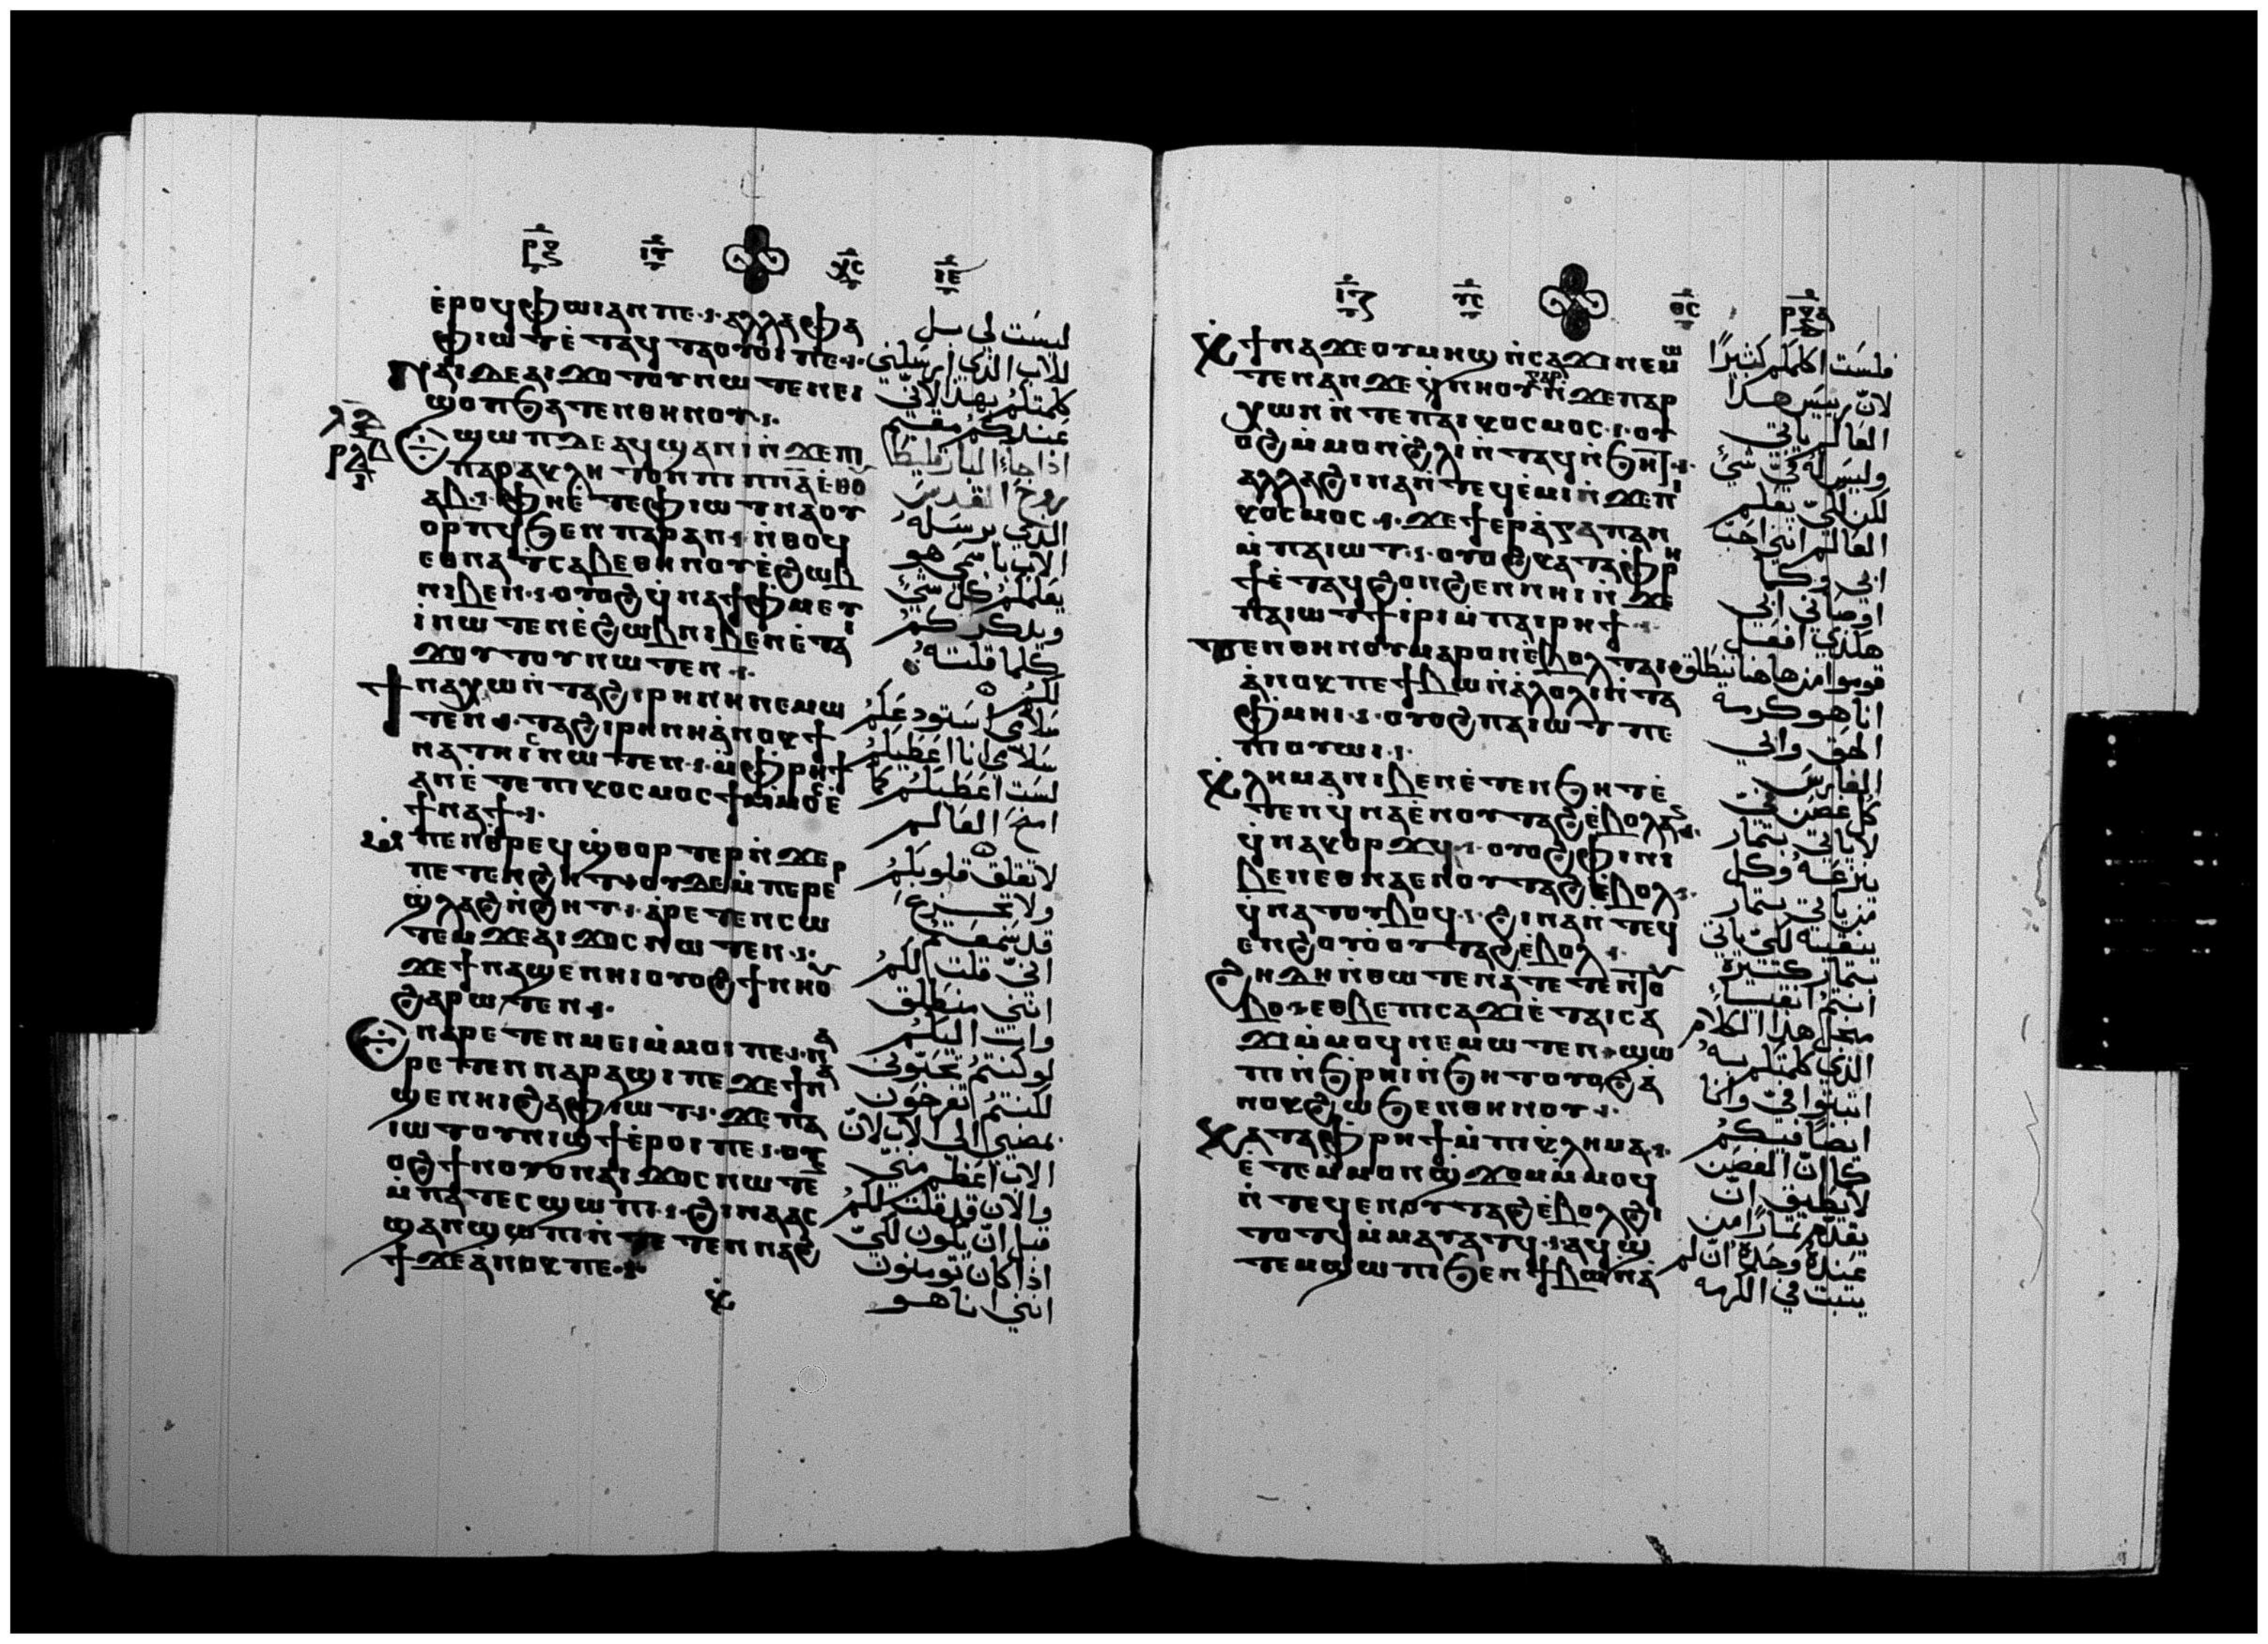 ⲣⲝ ⲓⲩ ⲭⲥ ⲓⲉ
ⲉ̀ⲣⲟϥ ⲫⲱⲓ ⲁⲛ ⲡⲉ ⲁⲗⲗⲁ ⲫⲁ
ⲫⲓⲱⲧ ⲉ̀ⲧⲁϥⲧⲁⲟⲩⲟⲓ ⲡⲉ
ⲛⲁⲓ ⲇⲉ ⲁⲓϫⲟⲧⲟⲩ ⲛⲱⲧⲉⲛ ⲉⲓ
ϣⲟⲡ ϧⲁⲧⲉⲛ ⲑⲏⲛⲟⲩ
ϣⲱⲡ ⲇⲉ ⲁϥϣⲁⲛⲓ̀ ⲛ̀ϫⲉ ⲡⲓ
ⲡⲁⲣⲁⲕⲗⲏⲧⲟⲛ ⲡⲓⲡⲛⲁ ⲉ̀ⲑⲟⲩ
ⲁⲃ ⲫⲏ ⲉ̀ⲧⲉ ⲫⲓⲱⲧ ⲛⲁⲟⲩ
ⲟⲣⲡϥ ϧⲉⲛ ⲡⲁⲣⲁⲛ ⲛ̀ⲑⲟϥ
ⲉⲑⲛⲁⲧⲥⲁⲃⲉ ⲑⲏⲛⲟⲩ ⲉ̀ϩⲱⲃ
ⲛⲓⲃⲉⲛ ⲟⲩⲟϩ ϥ̀ⲛⲁϯⲫⲙⲉⲩⲓ
ⲓ̀ⲛⲱⲧⲉⲛ ⲉ̀ϩⲱⲃ ⲛⲓⲃⲉⲛ ⲉ̀ⲧⲁ
ϫⲟⲩⲧⲟⲩ ⲛⲱⲧⲉⲛ
ϯⲛⲁⲭⲱ ⲛ̀ⲧⲁϩⲓⲣⲏⲛⲏ ⲛⲉⲙⲱ
ⲧⲉⲛ ⲧⲁϩⲓⲣⲏⲛⲏ ⲁ̀ⲛⲟⲕ ϯ
ⲛⲁⲧⲏⲓⲥ ⲛⲱⲧⲉⲛ ⲙ̀ⲫⲣⲏϯ
ⲁⲛ ⲉ̀ⲧⲉ ⲡⲓⲕⲟⲥⲙⲟⲥ ϯ ⲙ̀ⲙⲟⲥ ⲉ̀
ϯⲛⲁϯ
ⲡⲉⲛⲑ̀ⲣⲉϥϣ̀ⲑⲟⲣⲧⲉⲣ ⲛ̀ϫⲉ
ⲡⲉⲧⲉⲛϩⲏⲧ ⲟⲩⲇⲉ ⲙ̀ⲡⲉⲣⲉⲣ
ϣ̀ⲗⲁϩ ⲛ̀ϩⲏⲧ ⲁ̀ⲣⲉⲧⲉⲛⲥⲱ
ⲧⲉⲙ ϫⲉ ⲁⲓϫⲟⲥ ⲛⲱⲧⲉⲛ
ϫⲉ ϯⲛⲁϣⲉⲛⲏⲓ ⲟⲩⲟϩ ϯⲛⲏⲟⲩ
ϩⲁⲣⲱⲧⲉⲛ
ⲛⲁⲣⲉⲧⲉⲛⲙⲉⲓ ⲙ̀ⲙⲟⲓ ⲡⲉ ⲛⲁ
ⲣⲉⲧⲉⲛⲛⲁⲣⲁϣⲓ ⲡⲉ ϫⲉ ϯⲛⲁ
ϣⲉⲛⲏⲓ ϩⲁ ⲫⲓⲱⲧ ϫⲉ ⲡⲁ
ⲓⲱⲧ ⲟⲩⲛⲓϣϯ ⲉ̀ⲣⲟⲓ ⲡⲉ ⲟⲩ
ⲟϩ ϯⲛⲟⲩ ⲟⲛ ⲁⲓϫⲟⲥ ⲛⲱⲧⲉ
ⲙ̀ⲡⲁⲧⲉⲥϣⲱⲡⲓ ϩⲓⲛⲁ ⲁⲥ
ϣⲁⲛϣⲱⲡⲓ ⲛ̀ⲧⲉⲧⲉⲛⲛⲁϩ
ϯ ϫⲉ ⲁ̀ⲛⲟⲕ ⲡⲉ
ليست لي بل
للاب الذي ارسلني
كلمتكم بهذا لاني
عندكم مقيم
اذا جاء البارقليط
روح القدس
الذي يرسله
الاب باسمي هو
يعلمكم كل شيء
ويذكركم
كلما قلته
لكم
سلامي استودعكم
سلامي انا اعطيكم
لست اعطيكم كما
امنح العالم
لا تقلق قلوبكم
ولا تجزع
قد سمعتم
اني قلت لكم
انني منطلق
وات اليكم
لو كنتم تحبوني
لكنتم تفرحون
بمضيي الى الاب لان
الاب اعظم مني
والان قد قلت لكم
قبل ان يكون لكي
اذا كان تومنون
انني انا هو
ⲓⲩ ⲩⲥ ⲑⲥ ⲣⲝⲁ
ϯⲛⲁϫⲉ ⲟⲩⲙⲏϣ ⲛ̀ⲥⲁϫⲓ ⲛⲉⲙⲱ
ⲧⲉⲛ ⲁⲛ ϫⲉ ϥ̀ⲛⲏⲟⲩ ⲅⲁⲣ ⲛ̀ϫⲉ ⲡⲁⲣ
ⲭⲱⲛ ⲛ̀ⲧⲉ ⲡⲁⲓⲕⲟⲥⲙⲟⲥ ⲟⲩ
ⲟϩ ⲙ̀ⲙⲟⲛ ϩ̀ⲗⲓ ⲛ̀ⲧⲁϥ ⲛ̀ϧⲏⲧ
ⲁⲗⲗⲁ ϩⲓⲛⲁ ⲛ̀ⲧⲉϥⲉ̀ⲙⲓ ⲛ̀ϫⲉ ⲡⲓ
ⲕⲟⲥⲙⲟⲥ ϫⲉ ϯⲉⲣⲁ̀ⲅⲁⲡⲁⲛ
ⲙ̀ⲡⲁⲓⲱⲧ ⲟⲩⲟϩ ⲕⲁⲧⲁ ⲫ̀ⲣⲏ
ϯ ⲉ̀ⲧⲁϥϩⲟⲛϩⲉⲛ ⲛⲏⲓ ⲛ̀ϫⲉ
ⲡⲁⲓⲱⲧ ϯⲓ̀ⲣⲓ ⲙ̀ⲡⲁⲓⲣⲏϯ
ⲧⲉⲛⲑⲏⲛⲟⲩ ⲙⲁⲣⲟⲛ ⲉ̀ⲃⲟⲗ ⲧⲁⲓ
ⲁ̀ⲛⲟⲕ ⲡⲉ ϯⲃⲱ ⲛ̀ⲁ̀ⲗⲟⲗⲓ ⲛ̀ⲧⲁ
ⲫ̀ⲙⲏⲓ ⲟⲩⲟϩ ⲡⲁⲓⲱⲧ ⲡⲉ
ⲡⲓⲟⲩⲱⲓ
ⲕⲗⲏⲙⲁ ⲛⲓⲃⲉⲛ ⲉ̀ⲧⲉ ⲛ̀ϧⲏⲧ ⲉ̀
ⲧⲉⲛϥ̀ⲛⲁⲉⲛⲟⲩⲧⲁϩ ⲉ̀ⲃⲟⲗ ⲁⲛ
ϥ̀ⲛⲁⲕⲟⲣϫϥ ⲟⲩⲟϩ ⲫⲏ ⲛⲓ
ⲃⲉⲛ ⲉⲑⲛⲁⲉⲛⲟⲩⲧⲁϩ ⲉ̀ⲃⲟⲗ
ϥ̀ⲛⲁⲧⲟⲩⲃⲟϥ ϩⲓⲛⲁ ⲛ̀ⲧⲉϥ
ⲉⲛϩⲟⲩⲟ̀ ⲟⲩⲧⲁϩ ⲉ̀ⲃⲟⲗ
ϩⲏⲇⲏ ⲛ̀ⲑⲱⲧⲉⲛ ⲁ̀ⲧⲉⲧⲉⲛⲧⲟⲩ
ⲃⲟ ⲉⲑⲃⲉ ⲡⲓⲥⲁϫⲓ ⲉ̀ⲧⲁⲓⲥⲁ
ϫⲓ ⲙ̀ⲙⲟϥ ⲛⲉⲙⲱⲧⲉⲛ ϣⲱ
ⲡⲓ ⲛ̀ϧⲣⲏⲓ ⲛ̀ϧⲏⲧ ⲟⲩⲟϩ ⲁ̀
ⲛⲟⲕ ϩⲱ ϧⲉⲛ ⲑⲏⲛⲟⲩ
ⲕⲁⲧⲁ ⲫⲣⲏϯ ⲙ̀ⲡⲓⲕⲗⲏⲙⲁ
ⲉ̀ⲧⲉ ⲙ̀ⲙⲟⲛ ϣ̀ϫⲟⲙ ⲙ̀ⲙⲟϥ
ⲛ̀ⲧⲉϥⲉⲛⲟⲩⲧⲁϩ ⲉ̀ⲃⲟⲗ ϩⲓ
ⲧⲟⲧϥ ⲙ̀ⲙⲁⲩⲁⲧϥ ⲁϥϣ
ⲧⲉⲙϣⲱⲡⲓ ϧⲉⲛ ϯⲃⲱ ⲛ̀ⲁ̀
فلست اكلمكم كثيرا
لان رييس هذا
العالم ياتي
وليس له في شيء
لكن لكي يعلم
العالم انني احب
ابي وكما
اوصاني ابي
هكذي افعل
قوموا من هاهنا ننطلق
انا هو كرمه
الحق وابي
الغارس
كل غصن في
لا ياتي بثمار
ينزعه وكل
من ياتي بثمار
ينقيه لكي ياتي
بثمار كثيرة
انتم انقيا
من اجل هذا الكلام
الذي كلمتكم به
اثبتوا في وانا
ايضا فيكم
كما ان الغصن
لا يطيق ان
يقدم ثمارا من
عنده وحده ان لم
يثبت في الكرمه